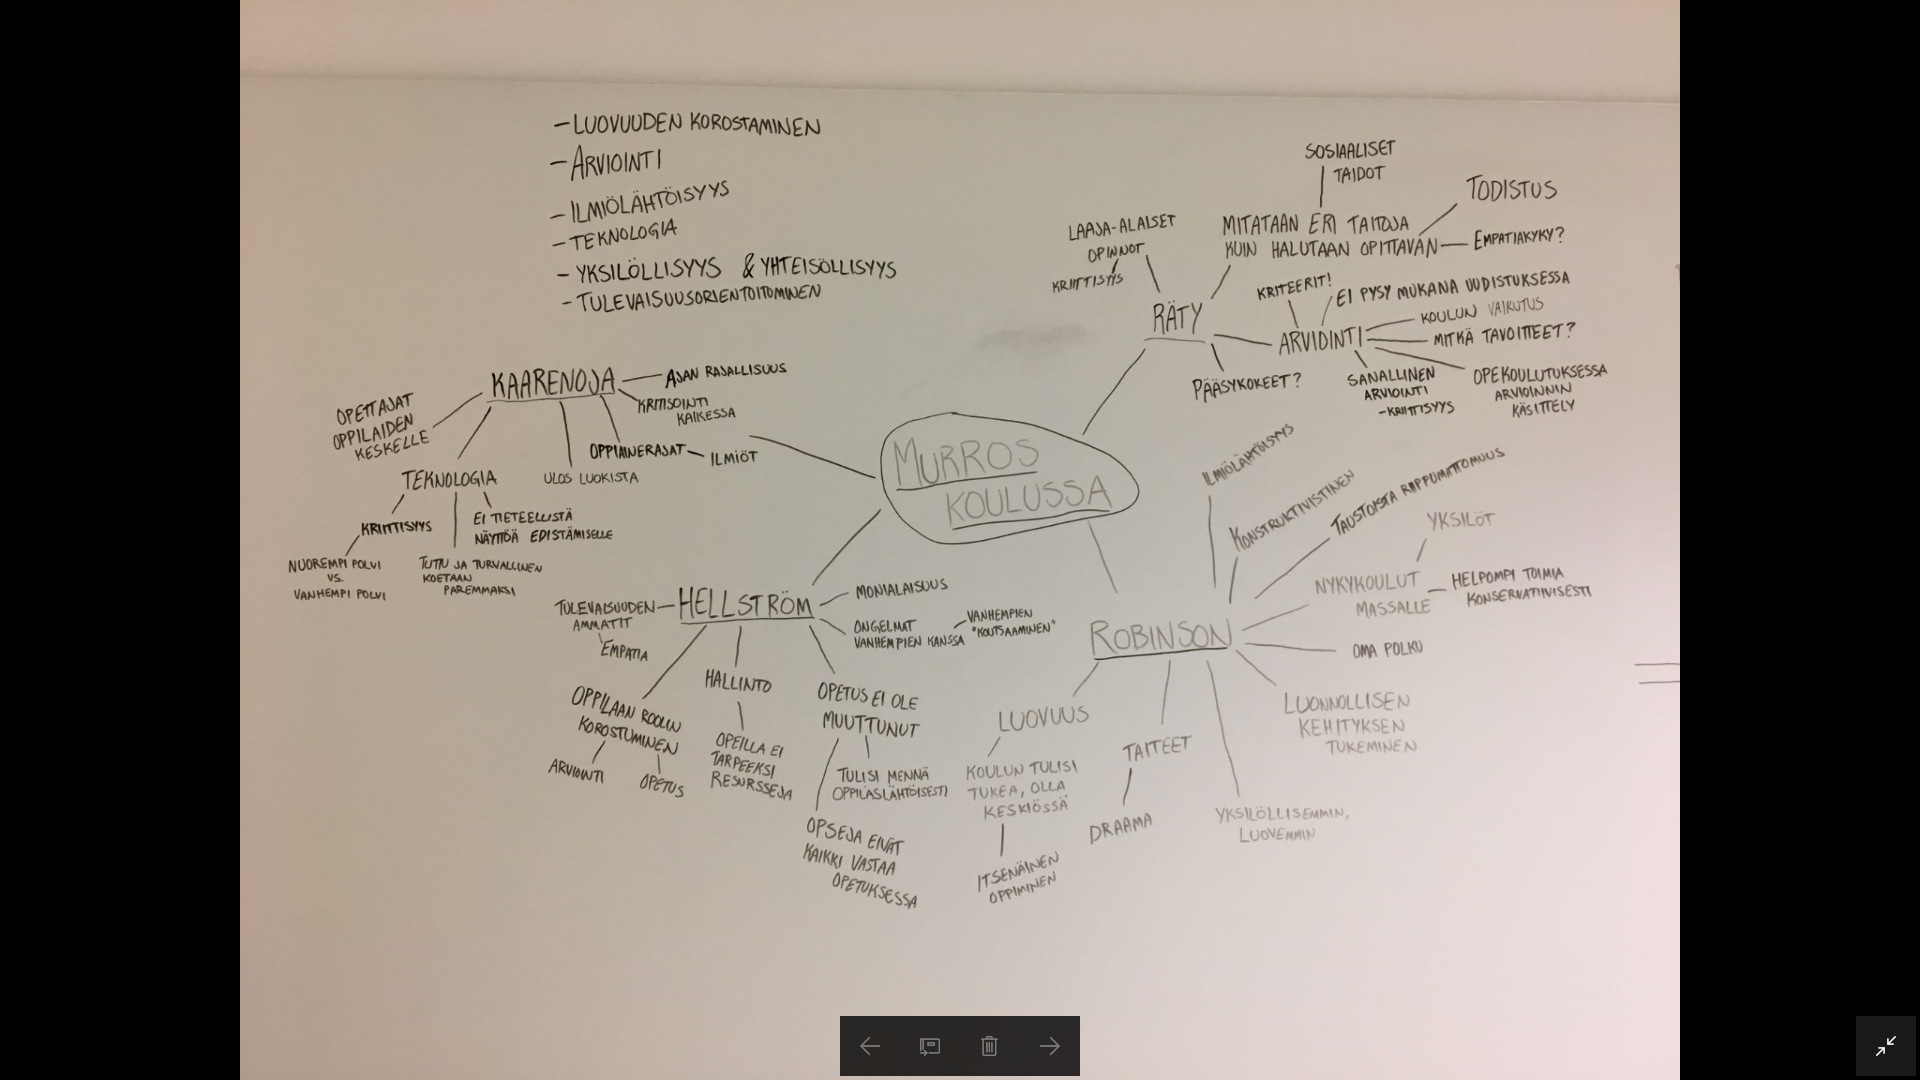 – LUOVUUDEN KOROSTAMINEN
– ARVIOINTI
– ILMIÖLÄHTÖISYYS
– TEKNOLOGIA
– YKSILÖLLISYYS & YHTEISÖLLISYYS
– TULEVAISUUSORIENTOITOMINEN
MURROS
KOULUSSA
KAARENOJA
AJAN RAJALLISUUS
KRITISOINTI
KAIKESSA
OPETTAJAT
OPPILAIDEN
KESKELLE
OPPIAINERAJAT
ILMIÖT
ULOS LUOKISTA
TEKNOLOGIA
KRIITTISYYS
NUOREMPI POLVI
VS.
VANHEMPI POLVI
EI TIETEELLISTÄ
NÄYTTÖÄ EDISTÄMISELLE
TUTTU JA TURVALLINEN
KOETAAN
PAREMMAKSI
RÄTY
LAAJA-ALAISET
OPINNOT
KRIITTISYYS
MITATAAN ERI TAITOJA
KUIN HALUTAAN OPITTAVAN
SOSIAALISET
TAIDOT
TODISTUS
EMPATIAKYKY?
PÄÄSYKOKEET?
ARVIOINTI
KRITEERIT!
EI PYSY MUKANA UUDISTUKSESSA
KOULUN VAIKUTUS
MITKÄ TAVOITTEET?
OPEKOULUTUKSESSA
ARVIOINNIN
KÄSITTELY
SANALLINEN
ARVIOINTI
-KRIITTISYYS
HELLSTRÖM
TULEVAISUUDEN
AMMATIT
EMPATIA
MONIALAISUUS
ONGELMAT
VANHEMPIEN KANSSA
VANHEMPIEN
"KOUTSAAMINEN"
OPPILAAN ROOLIN
KOROSTUMINEN
ARVIOINTI
OPETUS
HALLINTO
OPEILLA EI
TARPEEKSI
RESURSSEJA
OPETUS EI OLE
MUUTTUNUT
TULISI MENNÄ
OPPILASLÄHTÖISESTI
OPSEJA EIVÄT
KAIKKI VASTAA
OPETUKSESSA
ROBINSON
ILMIÖLÄHTÖISYYS
KONSTRUKTIVISTINEN
TAUSTOISTA RIIPPUMATTOMUUS
YKSILÖT
NYKYKOULUT
MASSALLE
HELPOMPI TOIMIA
KONSERVATIIVISESTI
OMA POLKU
LUONNOLLISEN
KEHITYKSEN
TUKEMINEN
YKSILÖLLISEMMIN,
LUOVEMMIN
TAITEET
DRAAMA
LUOVUUS
KOULUN TULISI
TUKEA, OLLA
KESKIÖSSÄ
ITSENÄINEN
OPPIMINEN